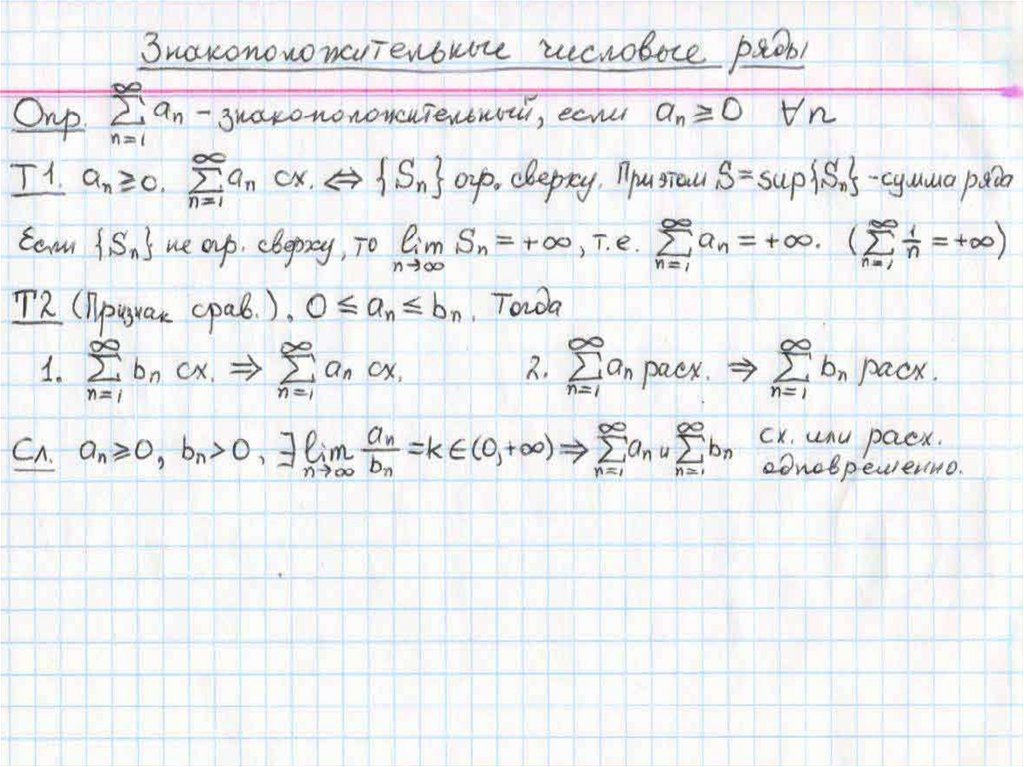 Знакоположительные числовые ряды
Опр. $\sum_{n=1}^{\infty} a_n$ - знакоположительный, если $a_n \geq 0$ $\forall n$
Т1. $a_n \geq 0$. $\sum_{n=1}^{\infty} a_n$ сх. $\Leftrightarrow$ $\{S_n\}$ огр. сверху. При этом $S = \sup\{S_n\}$ - сумма ряда
Если $\{S_n\}$ не огр. сверху, то $\lim_{n \to \infty} S_n = +\infty$, т.е. $\sum_{n=1}^{\infty} a_n = +\infty$. ($\sum_{n=1}^{\infty} \frac{1}{n} = +\infty$)
Т2 (Признак срав.). $0 \leq a_n \leq b_n$. Тогда
1. $\sum_{n=1}^{\infty} b_n$ сх. $\Rightarrow$ $\sum_{n=1}^{\infty} a_n$ сх. 2. $\sum_{n=1}^{\infty} a_n$ расх. $\Rightarrow$ $\sum_{n=1}^{\infty} b_n$ расх.
Сл. $a_n \geq 0$, $b_n > 0$. $\exists \lim_{n \to \infty} \frac{a_n}{b_n} = k \in (0, +\infty)$ $\Rightarrow$ $\sum_{n=1}^{\infty} a_n$ и $\sum_{n=1}^{\infty} b_n$ сх. или расх.
одновременно.